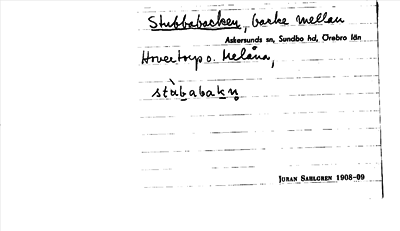 Stubbabacken, backe mellan
Askersunds sn, Sundbo hd, Örebro län
Hovertorp o. Helåna,
stùbabakn̥
JORAN SAHLGREN 1908-09